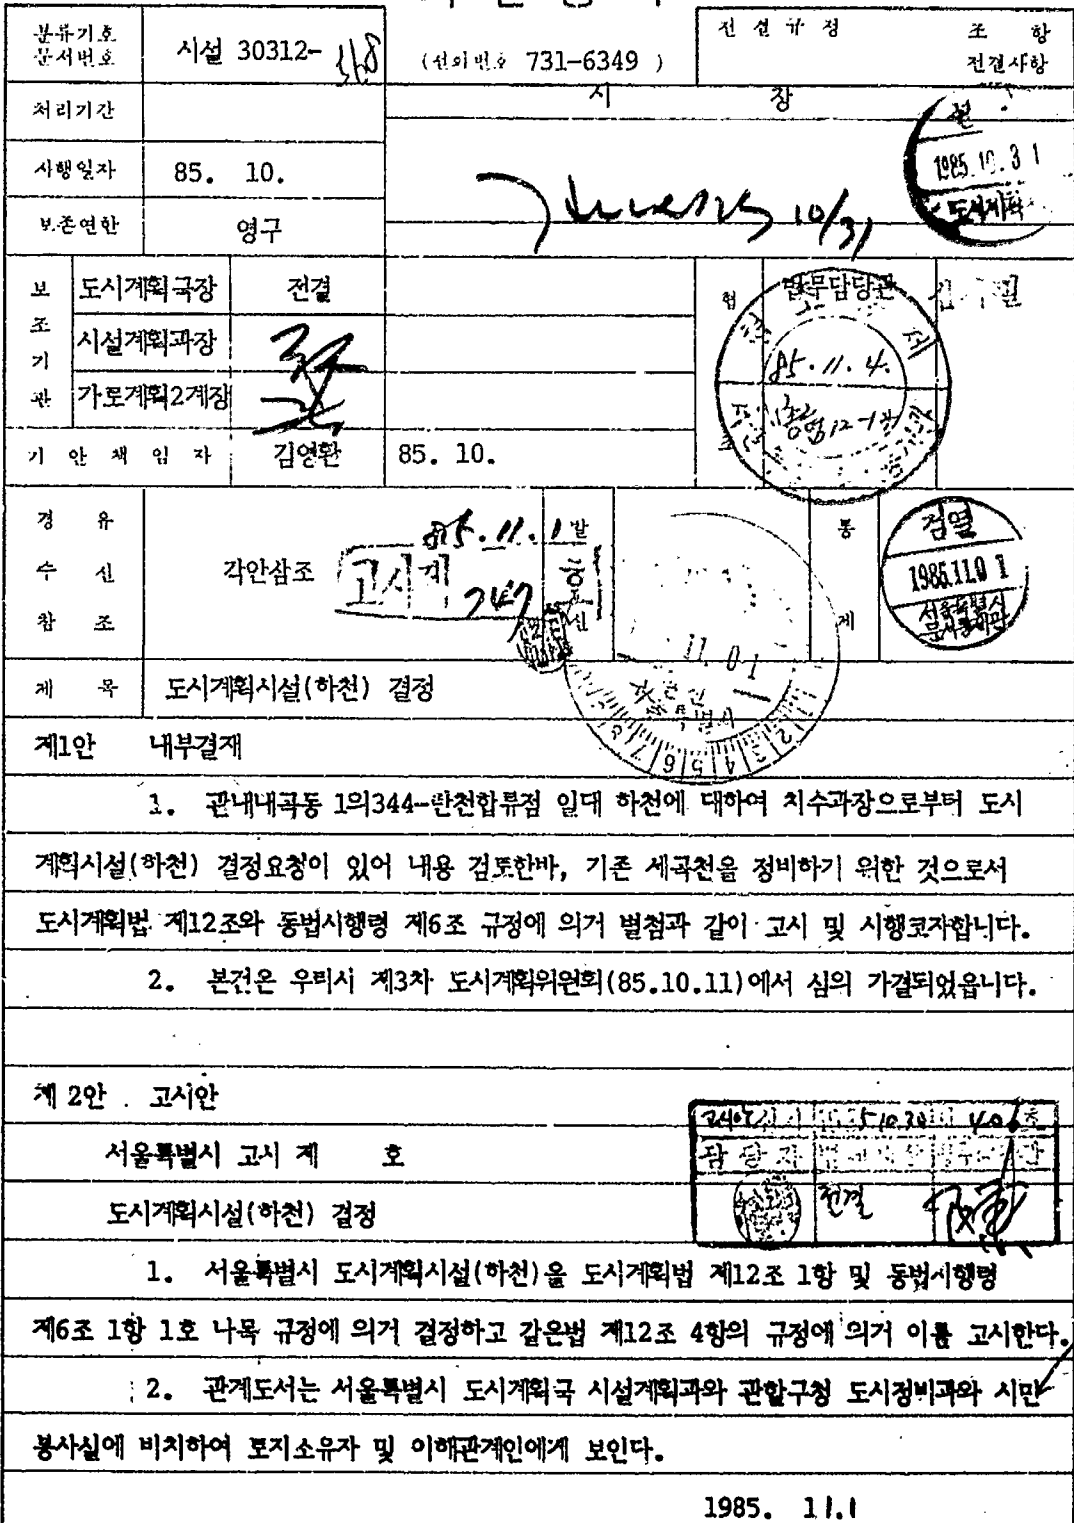 분류기호
문서번호
시설 30312-
(전화번호 731-6349 )
전결규정 조 항
전결사항
처리기간
시 장
시행일자 85. 10.
10/31
1985.10.31
보존연한 영구
보조기관
도시계획국장 전결
시설계획과장
가로계획2계장
법무담당관
85.11.4.
기 안 책 임 자 김영환 85. 10.
경 유
수 신
참 조
각안삼조
85.11.1
고시계
747
발신
통제
검열
1985.11.01
서울특별시
문서통제관
11.01
제 목 도시계획시설(하천) 결정
제1안 내부결재
1. 관내내곡동 1의344-탄천합류점 일대 하천에 대하여 치수과장으로부터 도시
계획시설(하천) 결정요청이 있어 내용 검토한바, 기존 세곡천을 정비하기 위한 것으로서
도시계획법 제12조와 동법시행령 제6조 규정에 의거 별첨과 같이 고시 및 시행코자합니다.
2. 본건은 우리시 제3차 도시계획위원회(85.10.11)에서 심의 가결되었읍니다.
제 2안 고시안
서울특별시 고시 제 호
담당자
전결
도시계획시설(하천) 결정
1. 서울특별시 도시계획시설(하천)을 도시계획법 제12조 1항 및 동법시행령
제6조 1항 1호 나목 규정에 의거 결정하고 같은법 제12조 4항의 규정에 의거 이를 고시한다.
2. 관계도서는 서울특별시 도시계획국 시설계획과와 관할구청 도시정비과와 시민
봉사실에 비치하여 토지소유자 및 이해관계인에게 보인다.
1985. 11.1